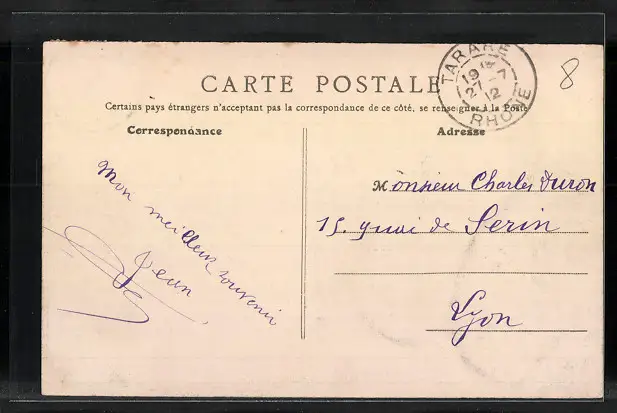 CARTE POSTALE
Certains pays étrangers n'acceptent pas la correspondance de ce côté, se renseigner à la Poste
Correspondance
Adresse
TARARE
19
27-7
12
RHONE
8
Monsieur Charles Duron
15. quai de Serin
Lyon
Mon meilleur souvenir
Jean